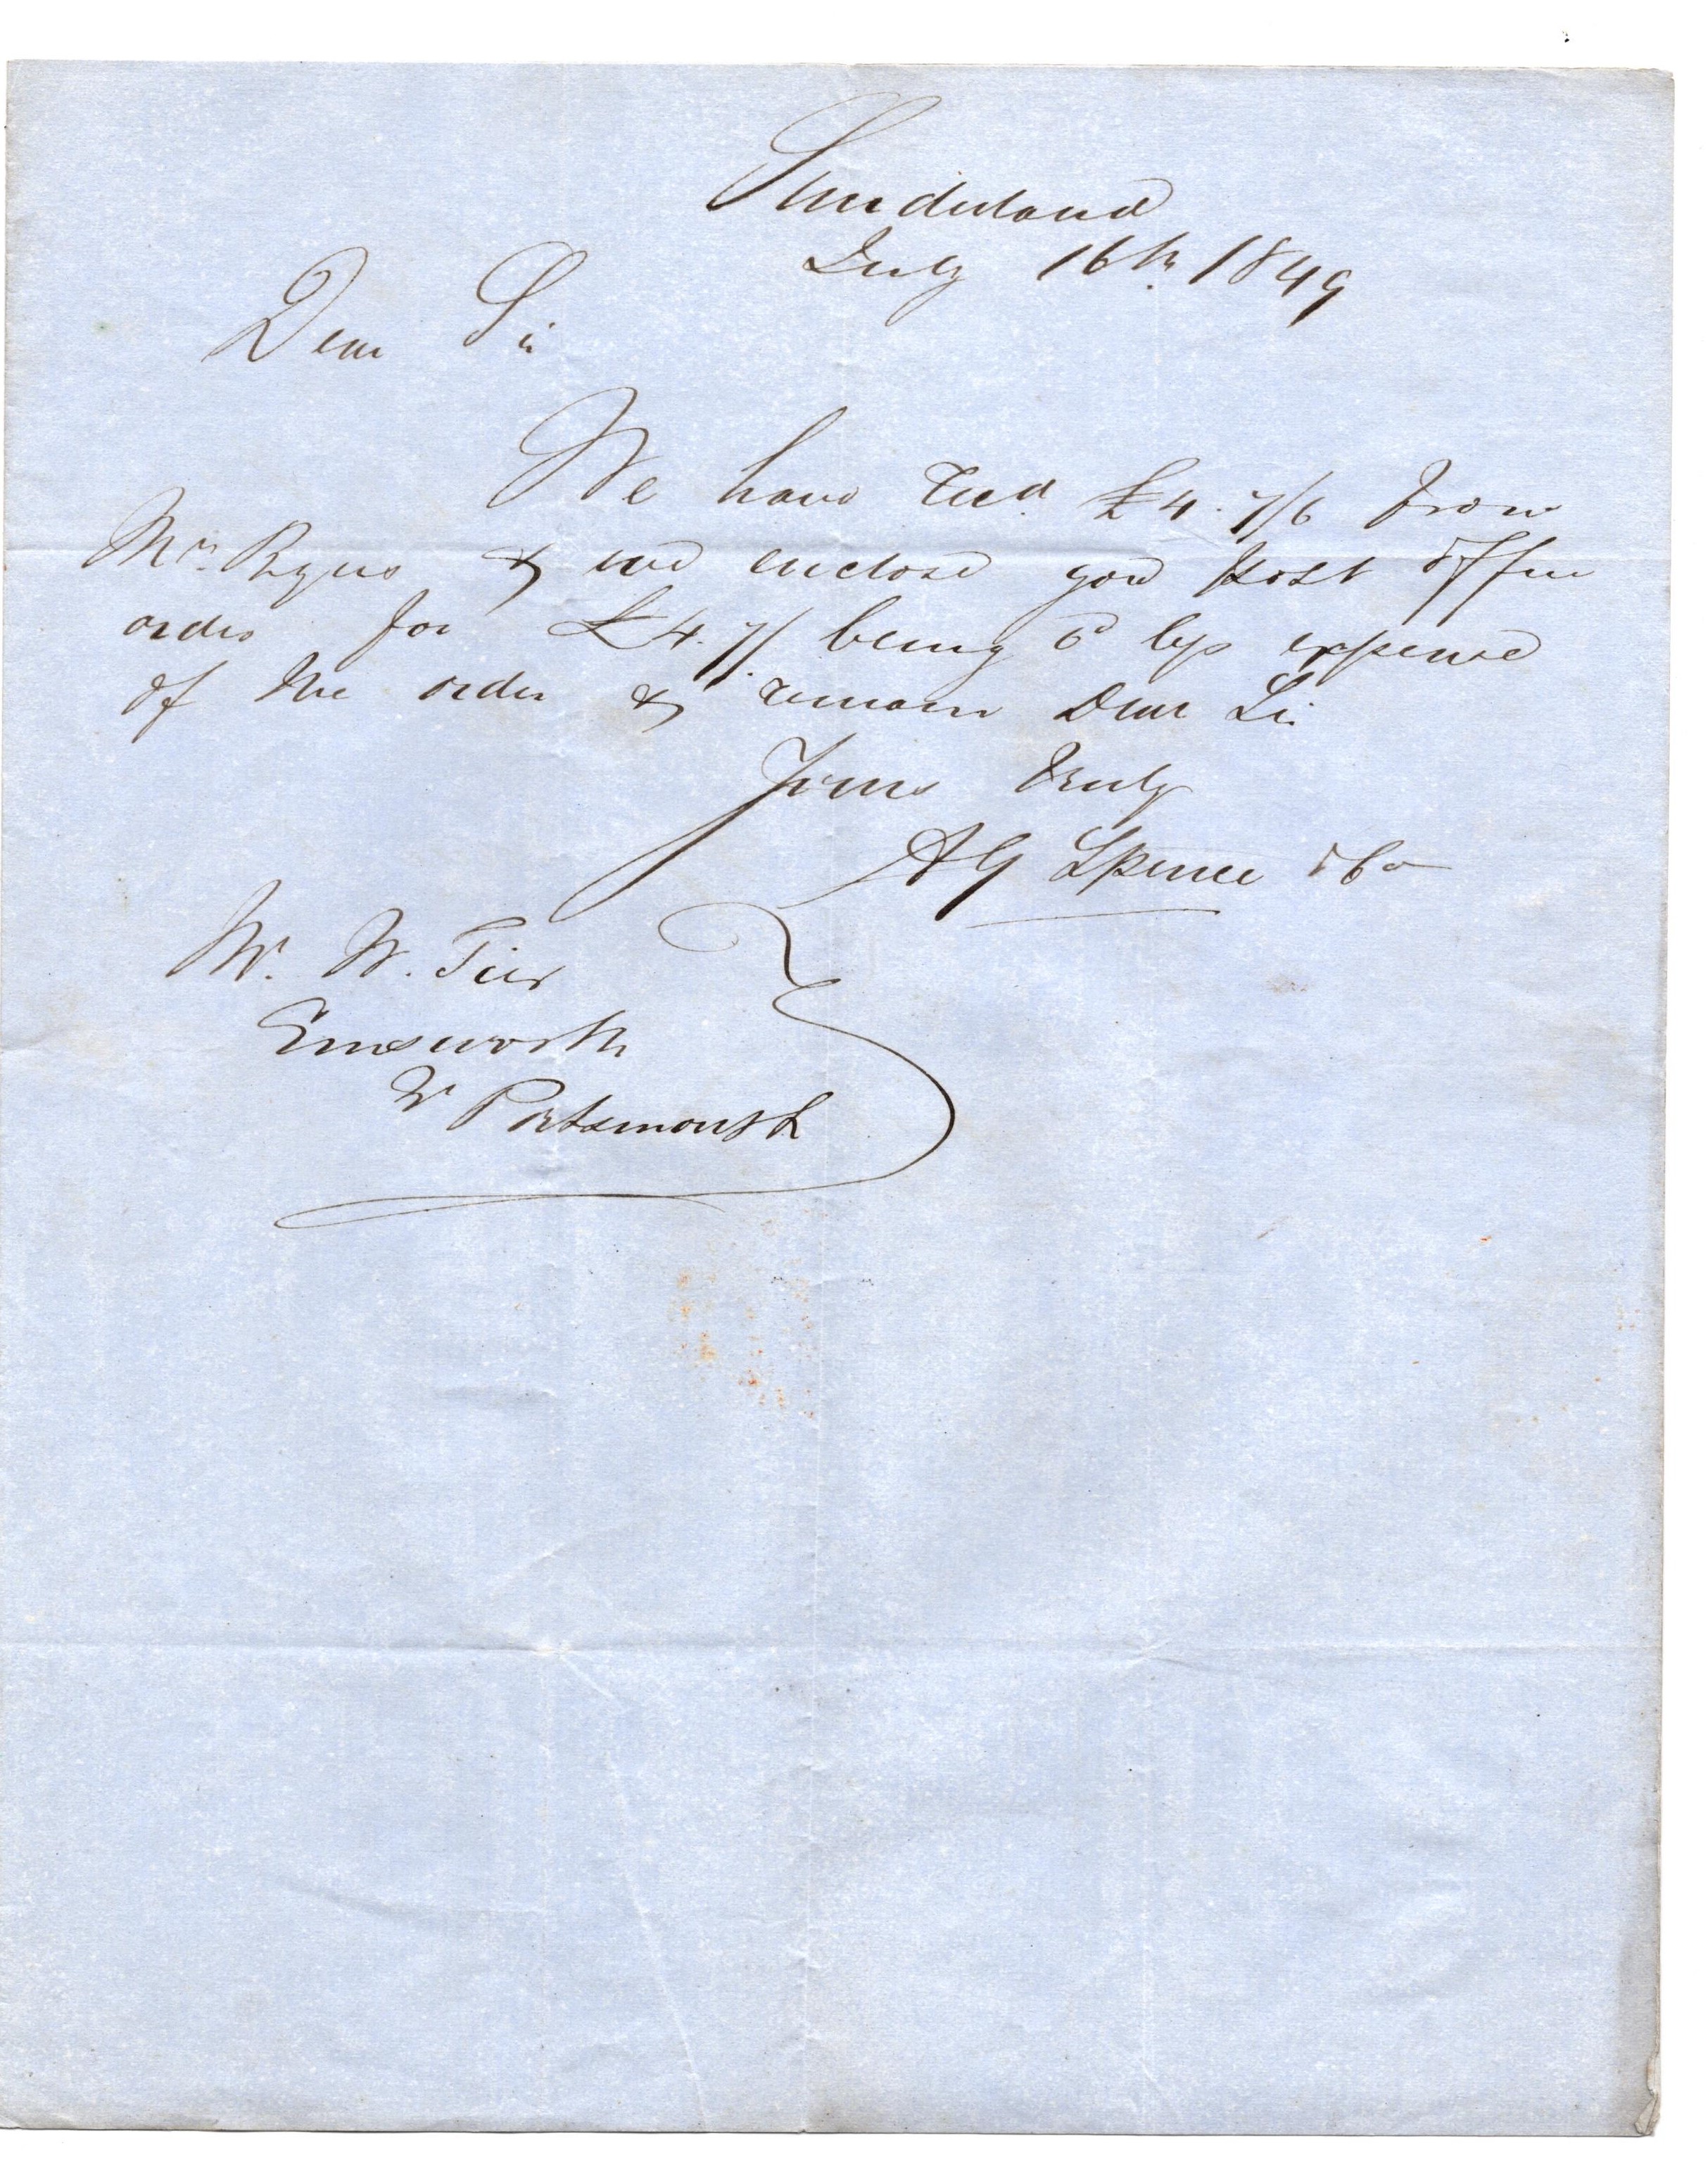 Sunderland
July 16th. 1849
Dear Sir
We have recd. £4.7/6 from
& we enclose you post office
order for £4.7/. being 6d less expense
of the order & remain Dear Sir
Yours truly
AG Spence & Co
Mr. W. Tier
Emsworth
Nr Portsmouth